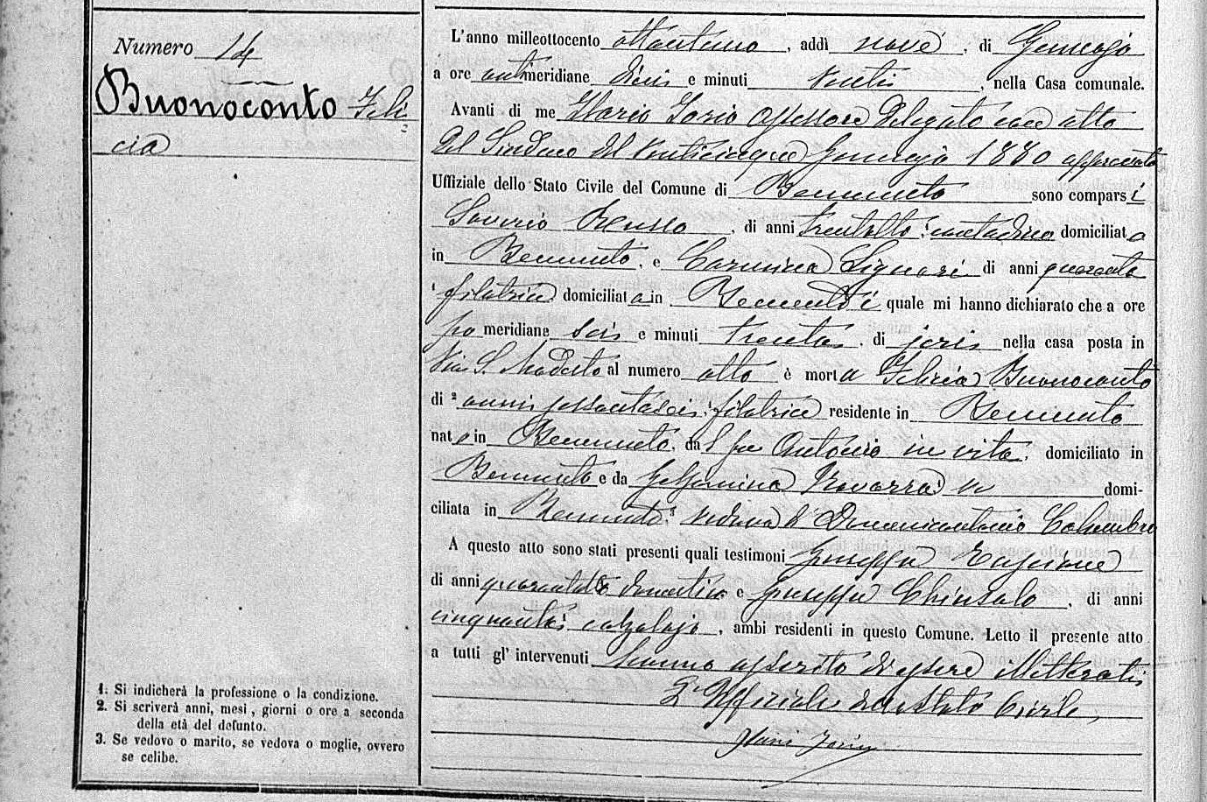 Numero 14
Buonoconto Feli=
cia
1. Si indicherà la professione o la condizione.
2. Si scriverà anni, mesi, giorni o ore a seconda
della età del defunto.
3. Se vedovo o marito, se vedova o moglie, ovvero
se celibe.
L'anno milleottocento ottantuno, addì nove di Gennajo
a ore antimeridiane dieci e minuti venti, nella Casa comunale.
Avanti di me Ilario Iorio Assessore Delegato con atto
del Sindaco del venticinque Gennajo 1880 approvato
Uffiziale dello Stato Civile del Comune di Benevento sono comparsi
Saverio Russo, di anni trentotto contadino domiciliato
in Benevento, e Carmina Signori di anni quaranta
filatrice domiciliata in Benevento i quali mi hanno dichiarato che a ore
po meridiane sei e minuti trenta, di jeri nella casa posta in
Via S. Modesto al numero otto è morta Felicia Buonoconto
di anni sessantasei filatrice residente in Benevento
nata in Benevento, da fu Antonio in vita, domiciliato in
Benevento e da Gelsomina Navarra in domi-
ciliata in Benevento vedova di Domenicantonio Colombro
A questo atto sono stati presenti quali testimoni Giuseppe
di anni quarantotto domestico e Giuseppe Chiusolo, di anni
cinquanta calzolajo, ambi residenti in questo Comune. Letto il presente atto
a tutti gl' intervenuti hanno asserito di essere illetterati
L'Officiale dello Stato Civile